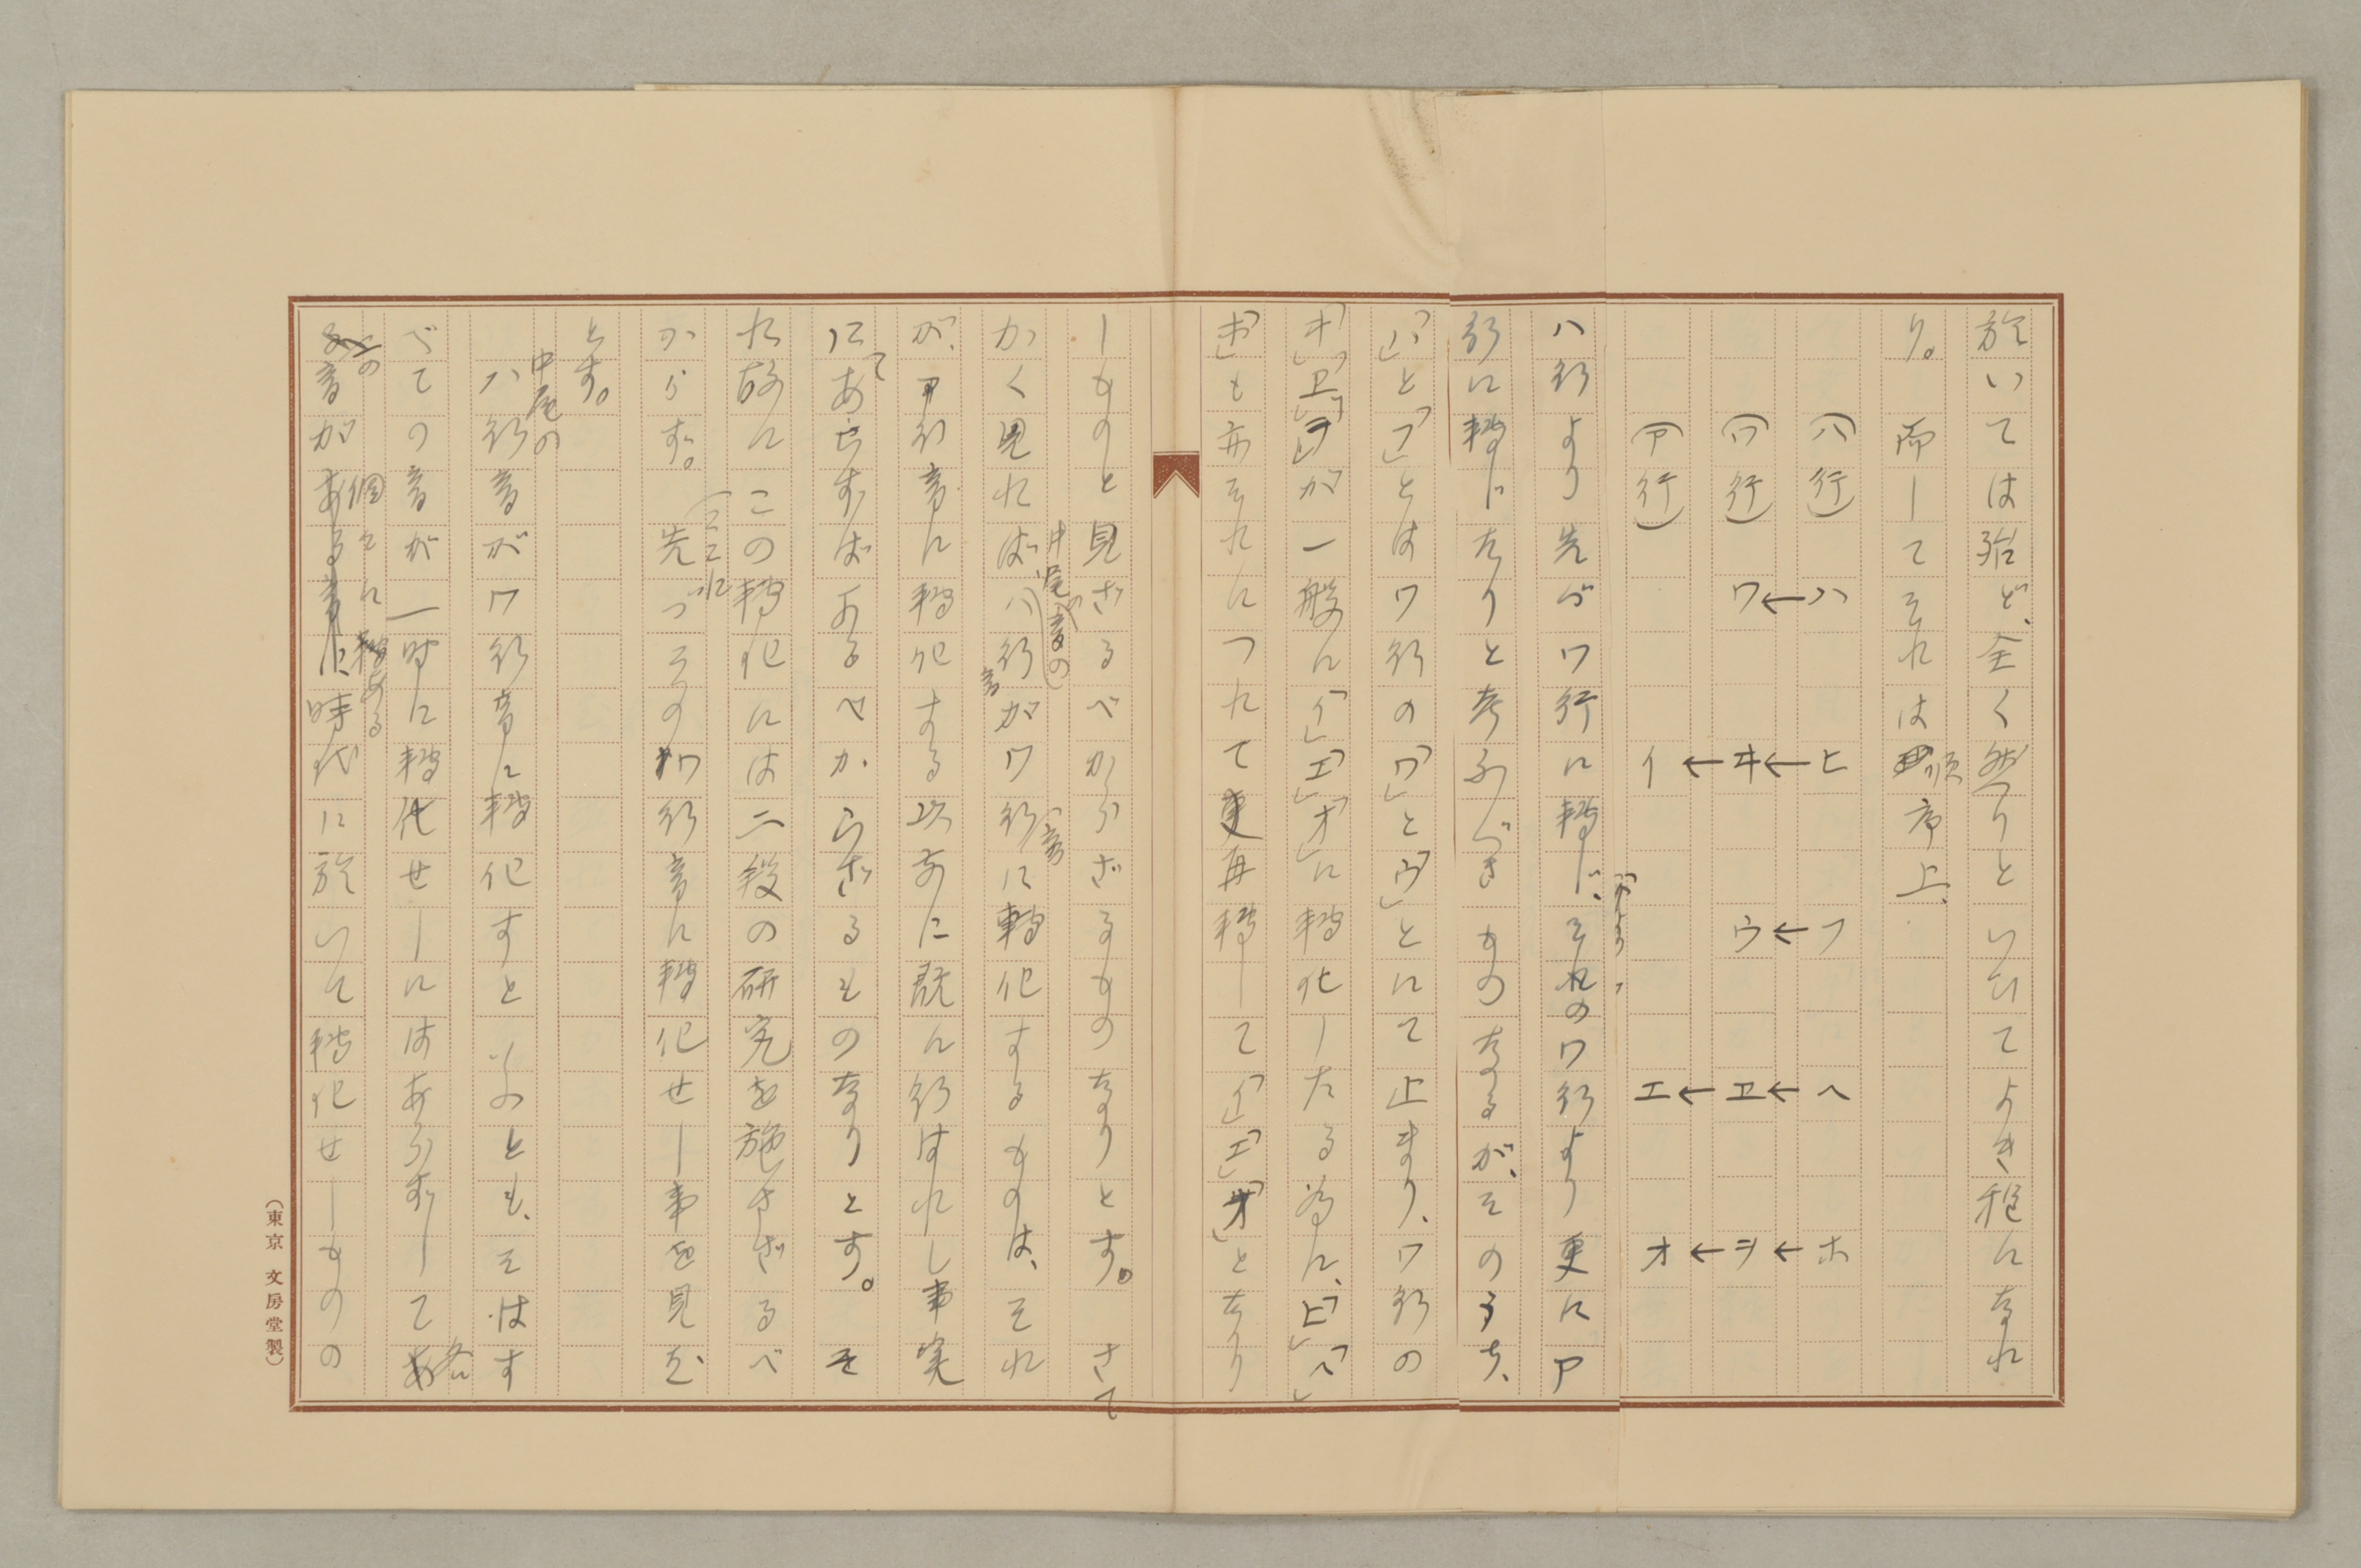 於いては殆ど、全く然りといひてよき程になれ
り。而してそれは順序上、
（ハ行）ハ ヒ フ ヘ ホ
（ワ行）ワ←ヰ←ウ←ヱ←ヲ←
（ア行）イ← エ← オ←
ハ行より先づワ行に転じ、そのワ行より更にア
行に転じたりと考ふべきものなるが、そのうち、
「ハ」と「フ」とはワ行の「ワ」と「ウ」とにて止まり、ワ行の
「ヰ」「ヱ」「ヲ」が一般に「イ」「エ」「オ」に転化したる為に、「ヒ」「ヘ」
「ホ」も亦それにつれて更再転して「イ」「エ」「オ」となり
しものと見ざるべからざるものなりとす。さて
かく見れば中尾音のハ行音がワ行音に転化するものは、それ
が、ア行音に転化する以前に既に行はれし事実
にてあらずばあるべからざるものなりとす。そ
れ故にこの転化には二段の研究を施さざるべ
からず。（ここに先づそのワ行音に転化せし事を見む
とす。
中尾のハ行音がワ行音に転化すといふとも、そはす
べての音が一時に転化せしにはあらずして各
の音が個々に時代に於いて転化せしものの
（東京 文房堂製）